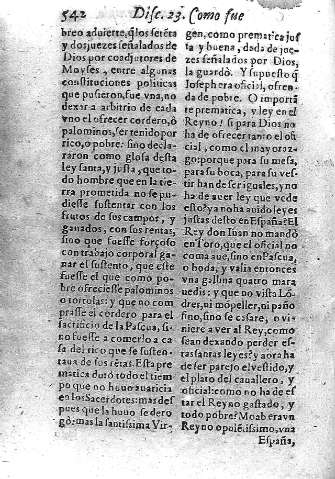 542 Disc. 23. Como fue
breo aduierte, q̃ los setẽta
y dos juezes señalados de
Dios por coadjutores de
Moyses, entre algunas
constituciones politicas
que pusieron, fue vna, no
dexar a arbitrio de cada
vno el ofrecer cordero, ò
palominos, ser tenido por
rico, o pobre: sino decla-
raron como glosa desta
ley santa, y justa, que to-
do hombre que en la tie-
rra prometida no se pu-
diesse sustentar con los
frutos de sus campos, y
ganados, con sus rentas,
sino que fuesse forçoso
con trabajo corporal ga-
nar el sustento, que este
fuesse el que como po-
bre ofreciesse palominos
o tortolas: y que no com
prasse el cordero para el
sacrificio de la Pascua, si-
no fuesse a comerlo a ca
sa del rico que se susten-
taua de sus rẽtas. Esta pre
matica durò todo el tiem
po que no huuo auaricia
en los Sacerdotes: mas des
pues que la huuo se dero
gò: mas la santissima Vir-
gen, como prematica jus
ta y buena, dada de jue-
zes señalados por Dios,
la guardò. Y supuesto q̃
Joseph era oficial, ofren-
da de pobre. O importã
te prematica, y ley en el
Reyno! si para Dios no
ha de ofrecer tanto el ofi
cial, como el mayoraz-
go: porque para su mesa,
para su boca, para su ves-
tir han de ser iguales, y no
ha de auer ley que vede
esto? ya no ha auido leyes
justas desto en España? El
Rey don Iuan no mandò
en Toro, que el oficial no
coma aue, sino en Pascua,
o boda, y valia entonces
vna gallina quatro mara
uedis: y que no vista Lõ-
dres, ni mopeller, ni paño
fino, sino se casare, o vi-
niere a ver al Rey, como
se an dexando perder es-
tas santas leyes? y aora ha
de ser parejo el vestido, y
el plato del cauallero, y
oficial: como no ha de es
tar el Reyno gastado, y
todo pobre? Moab era vn
Reyno opulẽtissimo, vna
España,